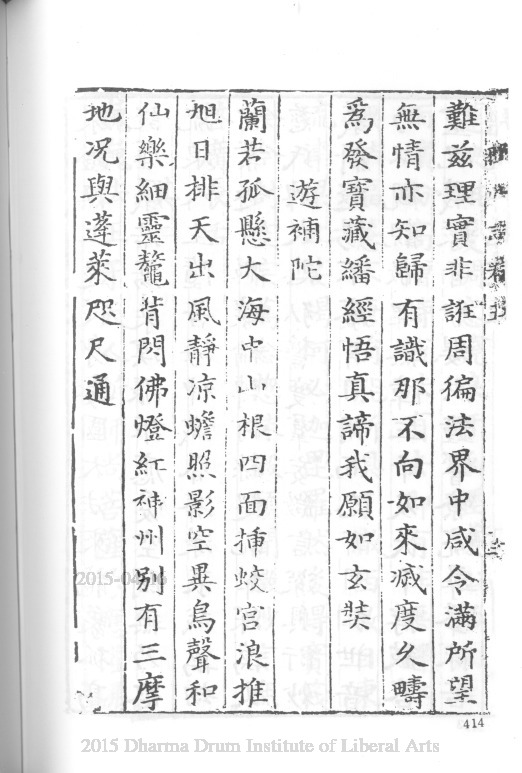 難茲理實非誑周徧法界中咸令滿所望
無情亦知歸有識那不向如來滅度久疇
爲發寶藏繙經悟真諦我願如玄奘
遊補陀
蘭若孤懸大海中山根四面插蛟宮浪推
旭日排天出風靜凉蟾照影空異鳥聲和
仙樂細靈鼇背閃佛燈紅神州別有三摩
地况與蓬萊咫尺通
414
2015-04-06
2015 Dharma Drum Institute of Liberal Arts